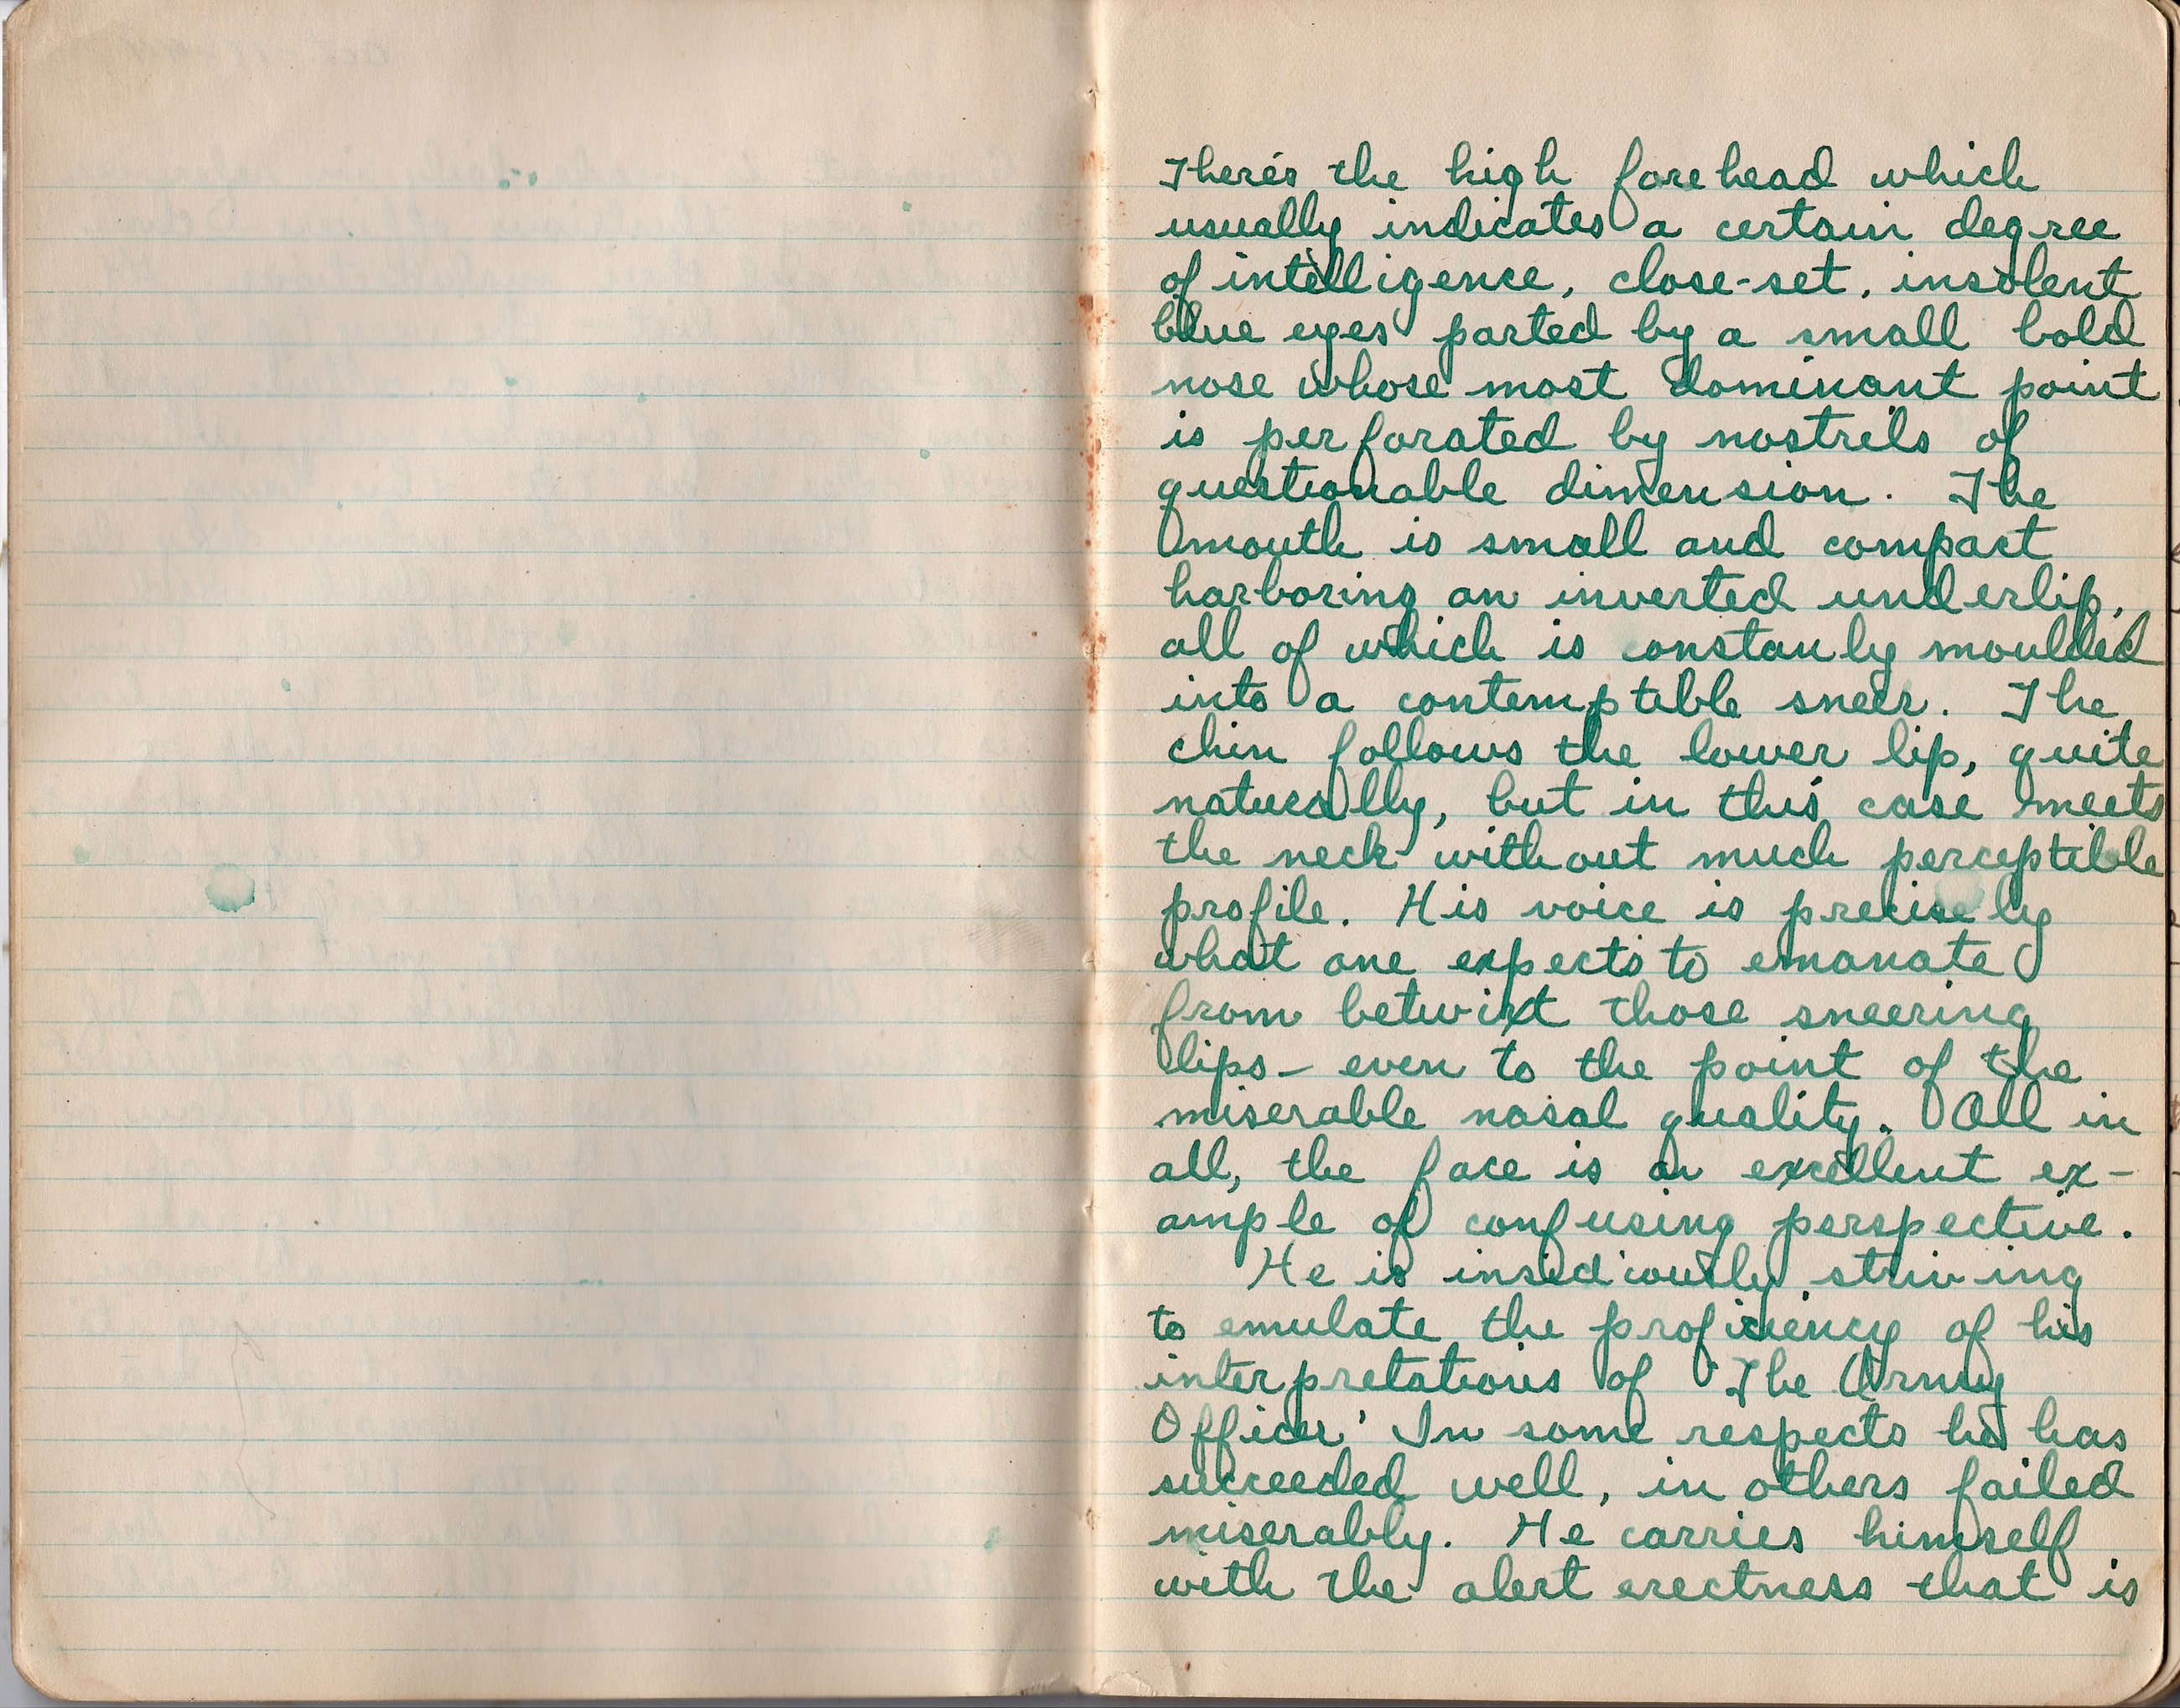 There's the high forehead which
usually indicates a certain degree
of intelligence, close-set, insolent
blue eyes parted by a small bold
nose whose most dominant point
is perforated by nostrils of
questionable dimension. The
mouth is small and compact
harboring an inverted underlip,
all of which is constanly moulded
into a contemptible sneer. The
chin follows the lower lip, quite
naturally, but in this case meets
the neck without much perceptible
profile. His voice is precisely
what one expects to emanate
from betwixt those sneering
lips - even to the point of the
miserable nasal quality. All in
all, the face is an excellent ex-
ample of confusing perspective.
He is insidiously striving
to emulate the proficiency of his
interpretations of 'The Army
Officer' In some respects he has
succeeded well, in others failed
miserably. He carries himself
with the alert erectness that is